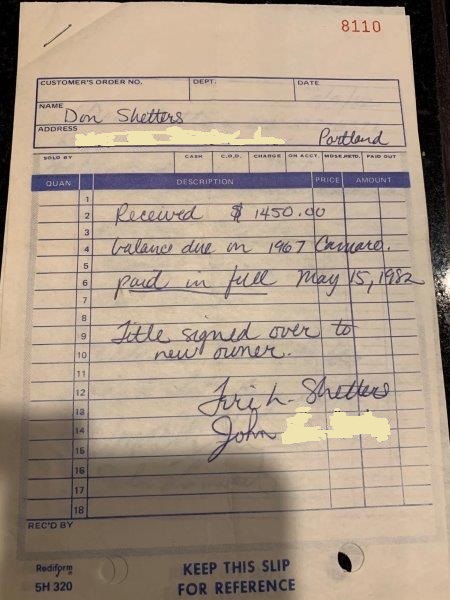 8110
CUSTOMER'S ORDER NO. DEPT. DATE
NAME Don Shetters
ADDRESS Portland
SOLD BY CASH C.O.D. CHARGE ON ACCT. MDSE.RETD. PAID OUT
QUAN DESCRIPTION PRICE AMOUNT
1
2 Received $ 1450.00
3
4 balance due on 1967 Camaro.
5
6 paid in full May 15, 1982
7
8
9 Title signed over to
10 new owner.
11
12 L. Shetters
13
14 John
15
16
17
18
REC'D BY
Rediform
5H 320
KEEP THIS SLIP
FOR REFERENCE